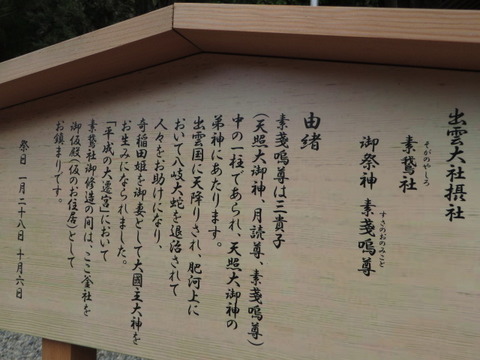 出雲大社摂社
そがのやしろ
素鵞社
すさのおのみこと
御祭神 素戔嗚尊
由緒
素戔嗚尊は三貴子
(天照大御神、月読尊、素戔嗚尊)
中の一柱であられ、天照大御神の
弟神にあたります。
出雲国に天降りされ、肥河上に
おいて八岐大蛇を退治されて
人々をお助けになり、
奇稲田姫を御妻として大國主大神を
お生みになられました。
「平成の大遷宮」において
素鵞社御修造の間は、ここ釜社を
御仮殿(仮のお住居)として
お鎮まりです。
祭日 一月二十八日 十月六日